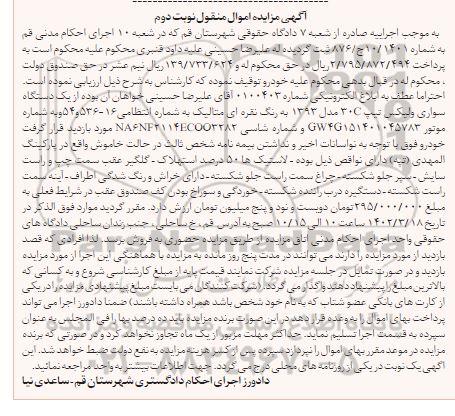 آگهی مزایده اموال منقول نوبت دوم
به موجب اجراییه صادره از شعبه ۷ دادگاه حقوقی شهرستان قم که در شعبه ۱۰ اجرای احکام مدنی قم
به شماره ۱۰/۱۴۰۱ج/۸۷۶ ثبت گردیده له علیرضا حسینی علیه داود قنبری محکوم علیه محکوم است به
پرداخت ۲/۷۹۵/۸۷۲/۴۹۴ ریال در حق محکوم له و ۱۳۹/۷۳۳/۶۲۴ ریال نیم عشر در حق صندوق دولت
. محکوم له در قبال بدهی محکوم علیه خودرو توقیف نموده که کارشناس به شرح ذیل ارزیابی نموده است.
احتراما عطف به ابلاغ الکترونیکی شماره ۰۱۰۰۴۰۳ آقای علیرضا حسینی خواهان آن بوده از یک دستگاه
سواری ولیکس تیپ ۳۰C مدل ۱۳۹۳ به رنگ نقره ای متالیک به شماره انتظامی ۱۶-۵۳۶و۵۴وبه شماره
موتور GW4G۱۵۱۴۰۱۰۴۵۷۸۳ و شماره شاسی NA۶NF۴۱۱۴ECOO۳۲۸۲ مورد بازدید قرار گرفت
خودرو فوق با توجه به نواسانات اخیر و نداشتن بیمه نامه شخص ثالث در حالت خاموش واقع در پارکینگ
المهدی (تپه) دارای نواقص ذیل بوده ـ لاستیک ها ۵۰ درصد استهلاک ـ گلگیر عقب سمت چپ و راست
سایش ـ سپر جلو شکسته ـ چراغ سمت راست جلو شکسته ـ دارای خراش و رنگ شدگی اطراف ـ آینه سمت
راست شکسته ـ دستگیره درب راننده شکسته ـ خوردگی و سوراخ بودن کف صندوق عقب در شرایط فعلی به
مبلغ ۲۹۵/۰۰۰/۰۰۰ تومان دویست و نود و پنج میلیون تومان ارزش دارد. مقرر گردید موارد فوق الذکر در
تاریخ ۱۴۰۲/۳/۱۸ ساعت ۱۰ الی ۱۰/۱۵ صبح به آدرس قم ، خ ساحلی ، جنب زندان ساحلی دادگاه های
حقوقی واحد اجرای احکام مدنی اتاق مزایده از طریق مزایده حضوری به فروش برسد. لذا افرادی که قصد
بازدید از مورد مزایده را دارند می توانند در مدت پنج روز مانده به مزایده با هماهنگی این اجرا از مورد مزایده
بازدید و در صورت تمایل در جلسه مزایده شرکت نمایند قیمت پایه از مبلغ کارشناسی شروع و به کسانی که
بالاترین مبلغ را پیشنهاد دهند واگذار می گردد (شرکت کنندگان می بایست مبلغ پیشنهادی مزایده را در یکی
از کارت های بانکی عضو شتاب که به نام خود شخص باشد همراه داشته باشند) ضمنا دادورز اجرا می تواند
پرداخت بهای اموال را به وعده قرار دهد در این صورت برنده مزایده باید ده درصد بها را فی المجلس به عنوان
سپرده به قسمت اجرا تسلیم نماید. حداکثر مهلت مزبور از یک ماه تجاوز نخواهد کرد و در صورتی که برنده
مزایده در موعد مقرر بهای اموال را نپردازد سپرده پس از کسر هزینه مزایده به نفع دولت ضبط خواهد شد. این
آگهی یک نوبت در یکی از روزنامه های محلی درج می گردد. جهت اطلاعات بیشتر به واحد مراجعه نمائید.
دادورز اجرای احکام دادگستری شهرستان قم - ساعدی نیا